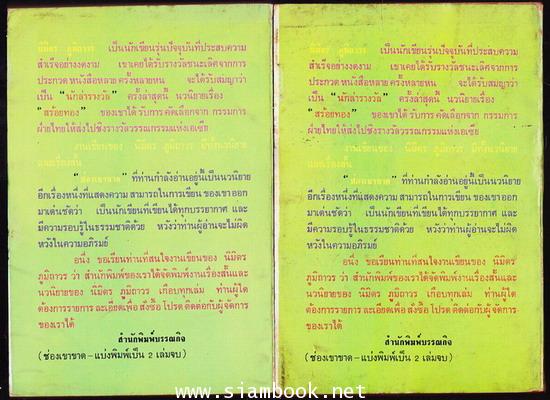 นิมิตร ภูมิถาวร เป็นนักเขียนรุ่นปัจจุบันที่ประสบความ
สำเร็จอย่างงดงาม เขาเคยได้รับรางวัลชนะเลิศจากการ
ประกวดหนังสือหลายครั้งหลายหน จะได้รับสมญาว่า
เป็น "นักล่ารางวัล" ครั้งล่าสุดนี้ นวนิยายเรื่อง
"สร้อยทอง" ของเขาได้รับการคัดเลือกจาก กรรมการ
ฝ่ายไทยให้ส่งไปชิงรางวัลวรรณกรรมแห่งเอเซีย
งานเขียนของ นิมิตร ภูมิถาวร มีทั้งนวนิยาย
และเรื่องสั้น
"ช่องเขาขาด" ที่ท่านกำลังอ่านอยู่นี้เป็นนวนิยาย
อีกเรื่องหนึ่งที่แสดงความสามารถในการเขียนของเขาออก
มาเด่นชัดว่า เป็นนักเขียนที่เขียนได้ทุกบรรยากาศ และ
มีความรอบรู้ในธรรมชาติด้วย หวังว่าท่านผู้อ่านจะไม่ผิด
หวังในความอภิรมย์
อนึ่ง ขอเรียนท่านที่สนใจงานเขียนของ นิมิตร
ภูมิถาวร ว่า สำนักพิมพ์ของเราได้จัดพิมพ์งานเรื่องสั้นและ
นวนิยายของ นิมิตร ภูมิถาวร เกือบทุกเล่ม ท่านผู้ใด
ต้องการรายการละเอียดเพื่อสั่งซื้อ โปรดติดต่อกับผู้จัดการ
ของเราได้
สำนักพิมพ์บรรณกิจ
(ช่องเขาขาด-แบ่งพิมพ์เป็น 2 เล่มจบ)
นิมิตร ภูมิถาวร เป็นนักเขียนรุ่นปัจจุบันที่ประสบความ
สำเร็จอย่างงดงาม เขาเคยได้รับรางวัลชนะเลิศจากการ
ประกวดหนังสือหลายครั้งหลายหน จะได้รับสมญาว่า
เป็น "นักล่ารางวัล" ครั้งล่าสุดนี้ นวนิยายเรื่อง
"สร้อยทอง" ของเขาได้รับการคัดเลือกจาก กรรมการ
ฝ่ายไทยให้ส่งไปชิงรางวัลวรรณกรรมแห่งเอเซีย
งานเขียนของ นิมิตร ภูมิถาวร มีทั้งนวนิยาย
และเรื่องสั้น
"ช่องเขาขาด" ที่ท่านกำลังอ่านอยู่นี้เป็นนวนิยาย
อีกเรื่องหนึ่งที่แสดงความสามารถในการเขียนของเขาออก
มาเด่นชัดว่า เป็นนักเขียนที่เขียนได้ทุกบรรยากาศ และ
มีความรอบรู้ในธรรมชาติด้วย หวังว่าท่านผู้อ่านจะไม่ผิด
หวังในความอภิรมย์
อนึ่ง ขอเรียนท่านที่สนใจงานเขียนของ นิมิตร
ภูมิถาวร ว่า สำนักพิมพ์ของเราได้จัดพิมพ์งานเรื่องสั้นและ
นวนิยายของ นิมิตร ภูมิถาวร เกือบทุกเล่ม ท่านผู้ใด
ต้องการรายการละเอียดเพื่อสั่งซื้อ โปรดติดต่อกับผู้จัดการ
ของเราได้
สำนักพิมพ์บรรณกิจ
(ช่องเขาขาด-แบ่งพิมพ์เป็น 2 เล่มจบ)
www.siambook.net